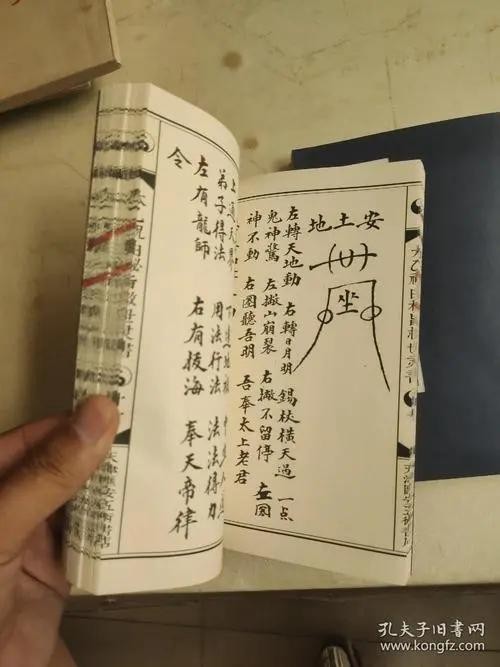 安土地
坐
左轉天地動 右轉日月明 錫杖橫天過 一点
鬼神驚 左撇山崩裂 右撇不留停 左圈
神不動 右圈聽吾明 吾奉太上老君
上通天界
弟子得法 用法行法 法法得力
左有龍師 右有拔海 奉天帝律
令
孔夫子旧书网
www.kongfz.com